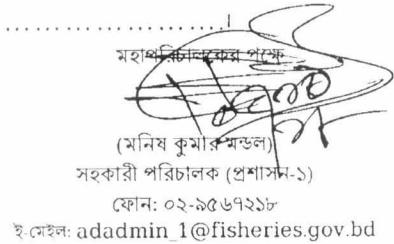 মহাপরিচালকের পক্ষে
(মনিষ কুমার মন্ডল)
সহকারী পরিচালক (প্রশাসন-১)
ফোন: ০২-৯৫৬৭২১৮
ই-মেইল: adadmin_1@fisheries.gov.bd